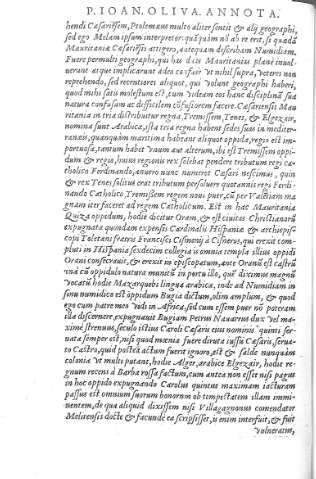 P. IOAN. OLIVA. ANNOTA.
hendi Cæsariēsem, Ptolemæus multo aliter sentit & alij geographi,
sed ego Melam ipsum interpretor: quāquam nō ab re erit, si quādā
Mauritania Cæsariēsis attigero, antequam discribam Numidiam.
Fuere permulti geographi, qui hæc duæ Mauritanias planè inuol-
uerunt atque implicarunt adeo cōfusè ut nihil supra, veteres non
reprehendo, sed recentiores aliquot, qui volunt geographi haberi,
quod mihi satis molestum est, cum videam eos hanc disciplinā sua
natura confusam ac difficilem cōfusiorem facere. Cæsariensis Mau
ritania in tria distribuitur regna, Tremissem, Tenes, & Elgezair,
nomina sunt Arabica, ista tria regna habent sedes suas in mediter-
raneis, quanquam maritima habeant aliquot oppida, regio est im-
portuosa, tantum habet vnum aut alterum, ibi est Tremissem oppi-
dum & regia, huius regionis rex solebat pendere tributum regi ca-
tholico Ferdinando, an vero nunc numeret Cæsari nescimus, quin
& rex Tenes solitus erat tributum persoluere quotannis regi Ferdi-
nando Catholico Tremissem regem noui puer, cū per Valētiam ma
gnam iter faceret ad regem Catholicum. Est in hac Mauritania
Quiza oppidum, hodie dicitur Oram, & est ciuitas Christianorū
expugnata quondam expensis Cardinalis Hispaniæ & archiepis-
copi Toletani fratris Francisci Cismenij à Cisneros, qui erexit com-
pluti in Hispania sexdecim collegia is omnia templa illius oppidi
Orani consecrauit, & erexit in episcopatum, ante Oranū est castrū
vnā cū oppidulo natura munitū in portu illo, quē diximus magnū
vocatū hodie Mazarquebi lingua arabica, inde ad Numidiam in
sinu numidico est oppidum Bugia dictum, olim amplum, & quod
ego cum patre meo vidi in Africa, sed cum essem puer nō poteram
illa discernere, expugnauit Bugiam Petrus Nauarrus dux vel ma-
ximè strenuus, seculo istius Caroli Cæsaris eius nominis quinti ser-
uata semper est, nisi quod mœnia fuere diruta iussu Cæsaris, serua-
to Castro, quid postea actum fuerit ignoro, est & Saldæ nunquàm
colonia Vt multi putant, hodie Alger, arabicè Elgezair, hodie re-
gnum recens à Barba rossa factum, cum antea non esset nisi pagus
in hoc oppido expugnando Carolus quintus maximam iacturam
passus est omnium suorum bonorum ob tempestatem illam immi-
nentem, de qua aliquid dixissem nisi Villagagnonus comendator
Melitensis docte & facunde ea scripsisset, is enim interfuit, & fuit
vulneratus,